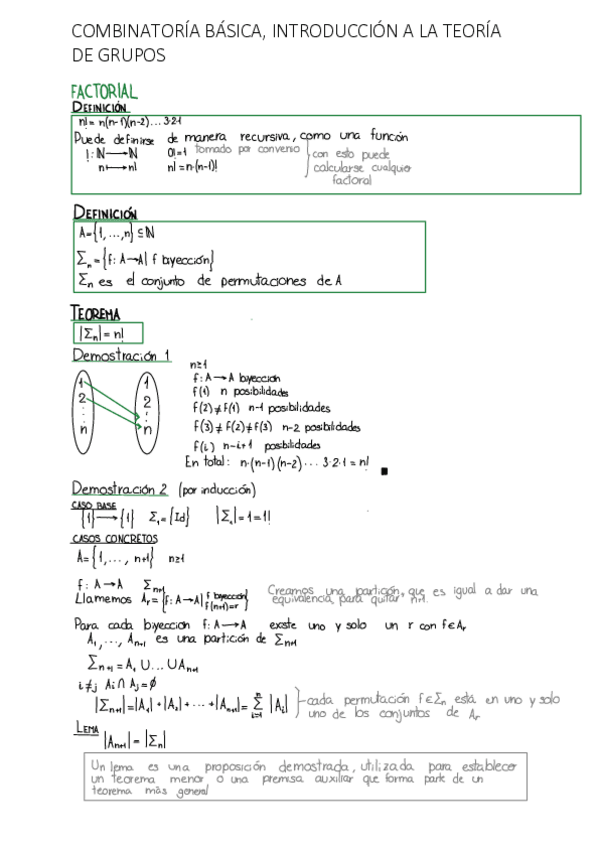 COMBINATORÍA BÁSICA, INTRODUCCIÓN A LA TEORÍA
DE GRUPOS
FACTORIAL
DEFINICIÓN
n! = n(n-1)(n-2)...3·2·1
Puede definirse de manera recursiva, como una función
!: ℕ → ℕ 0! = 1 tomado por convenio
n ↦ n! n! = n·(n-1)!
con esto puede
calcularse cualquier
factorial
DEFINICIÓN
A = {1, ..., n} ⊆ ℕ
Σₙ = {f: A → A | f biyección}
Σₙ es el conjunto de permutaciones de A
TEOREMA
|Σₙ| = n!
Demostración 1
1 2 ⋮ n
1 2 ⋮ n
n ≥ 1
f: A → A biyección
f(1) n posibilidades
f(2) ≠ f(1) n-1 posibilidades
f(3) ≠ f(2) ≠ f(3) n-2 posibilidades
f(i) n-i+1 posibilidades
En total: n·(n-1)(n-2)···3·2·1 = n! ■
Demostración 2 (por inducción)
CASO BASE
{1} → {1} Σ₁ = {Id} |Σ₁| = 1 = 1!
CASOS CONCRETOS
A = {1, ..., n+1} n ≥ 1
f: A → A Σₙ₊₁
Llamemos Aᵣ = {f: A → A | f biyección f(n+1) = r}
Creamos una partición, que es igual a dar una
equivalencia, para quitar n+1.
Para cada biyección f: A → A existe uno y solo un r con f ∈ Aᵣ
A₁, ..., Aₙ₊₁ es una partición de Σₙ₊₁
Σₙ₊₁ = A₁ ∪ ... ∪ Aₙ₊₁
i ≠ j Ai ∩ Aj = ∅
|Σₙ₊₁| = |A₁| + |A₂| + ··· + |Aₙ₊₁| = Σⁿᵢ₌₁ |Aᵢ|
cada permutación f ∈ Σₙ está en uno y solo
uno de los conjuntos de Aᵣ
LEMA
|Aₙ₊₁| = |Σₙ|
Un lema es una proposición demostrada, utilizada para establecer
un teorema menor o una premisa auxiliar que forma parte de un
teorema más general